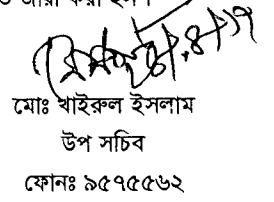 ও জারী করা হলে।
মোঃ খাইরুল ইসলাম
উপ সচিব
ফোনঃ ৯৫৭৫৫৬২